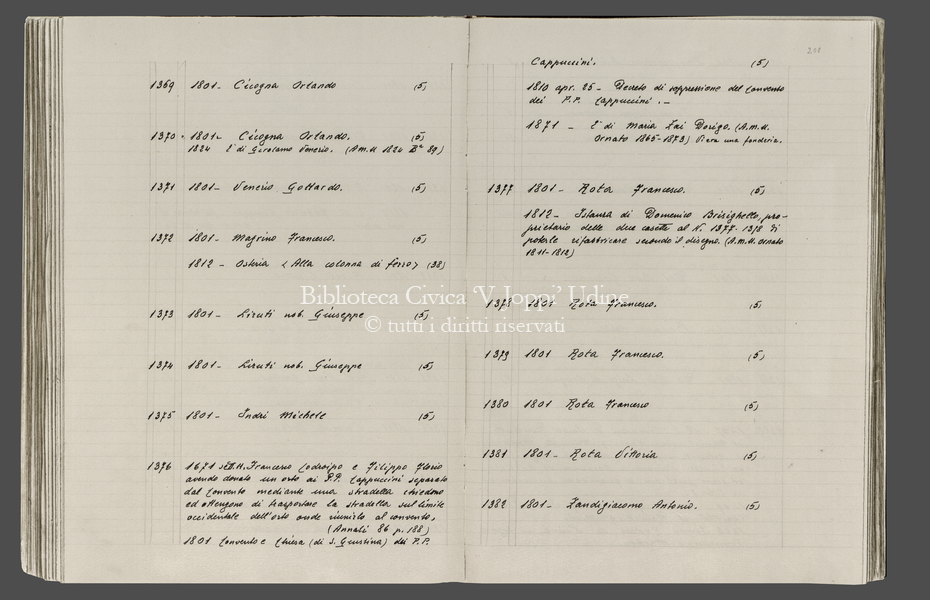 1369 1801- Cicogna Orlando (5)
1370 1801- Cicogna Orlando. (5)
1824 È di Girolamo Venerio. (A.M.U 1824 Bª 89)
1371 1801- Venerio Gottardo. (5)
1372 1801- Magrino Francesco. (5)
1812 - Osteria <Alla colonna di ferro> (38)
1373 1801- Liruti nob. Giuseppe (5)
1374 1801- Liruti nob. Giuseppe (5)
1375 1801- Indri Michele (5)
1376 1671 sett. 11. Francesco Codroipo e Filippo Florio
avendo donato un orto ai P.P. Cappuccini separato
dal Convento mediante una stradella chiedono
ed ottengono di trasportare la stradella sul limite
occidentale dell'orto onde riunirlo al convento.
(Annali 86 p. 188)
1801 Convento e Chiesa (di S. Giustina) dei P.P.
208
Cappuccini. (5)
1810 apr. 25 - Decreto di soppressione del Convento
dei P.P. Cappuccini. -
1871 - È di Maria Zai Dorigo. (A.M.U.
Ornato 1865-1873) V'era una fonderia.
1377 1801- Rota Francesco. (5)
1812- Istanza di Domenico Brisighello, pro-
prietario delle due casette al N. 1377-1378 di
poterle rifabbricare secondo il disegno. (A.M.U. Ornato
1811-1812)
1378 1801 Rota Francesco. (5)
1379 1801 Rota Francesco. (5)
1380 1801 Rota Francesco (5)
1381 1801- Rota Vittoria (5)
1382 1801- Zandigiacomo Antonio. (5)
Biblioteca Civica 'V. Joppi' Udine
© tutti i diritti riservati